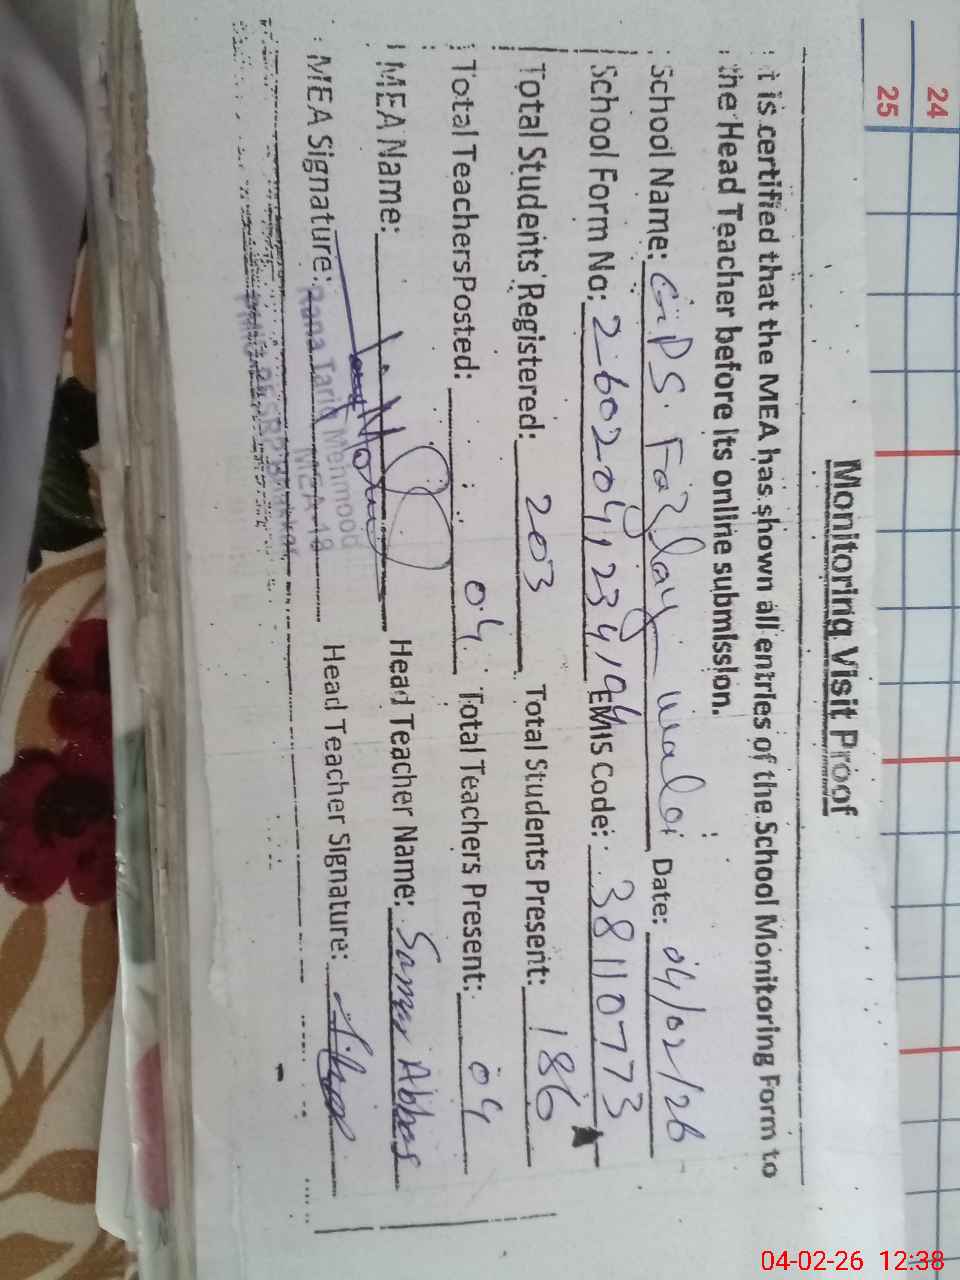 Monitoring Visit Proof
It is certified that the MEA has shown all entries of the School Monitoring Form to
the Head Teacher before its online submission.
School Name: GPS. Fazlay wala Date: 04/02/26
School Form No: EMIS Code: 38110773
Total Students Registered: 203 Total Students Present: 186
Total Teachers Posted: 04 Total Teachers Present: 04
MEA Name: Head Teacher Name: Samar Abbas
MEA Signature: Head Teacher Signature:
Rana Tariq Mehmood
MEA-18
24
25
04-02-26 12:38